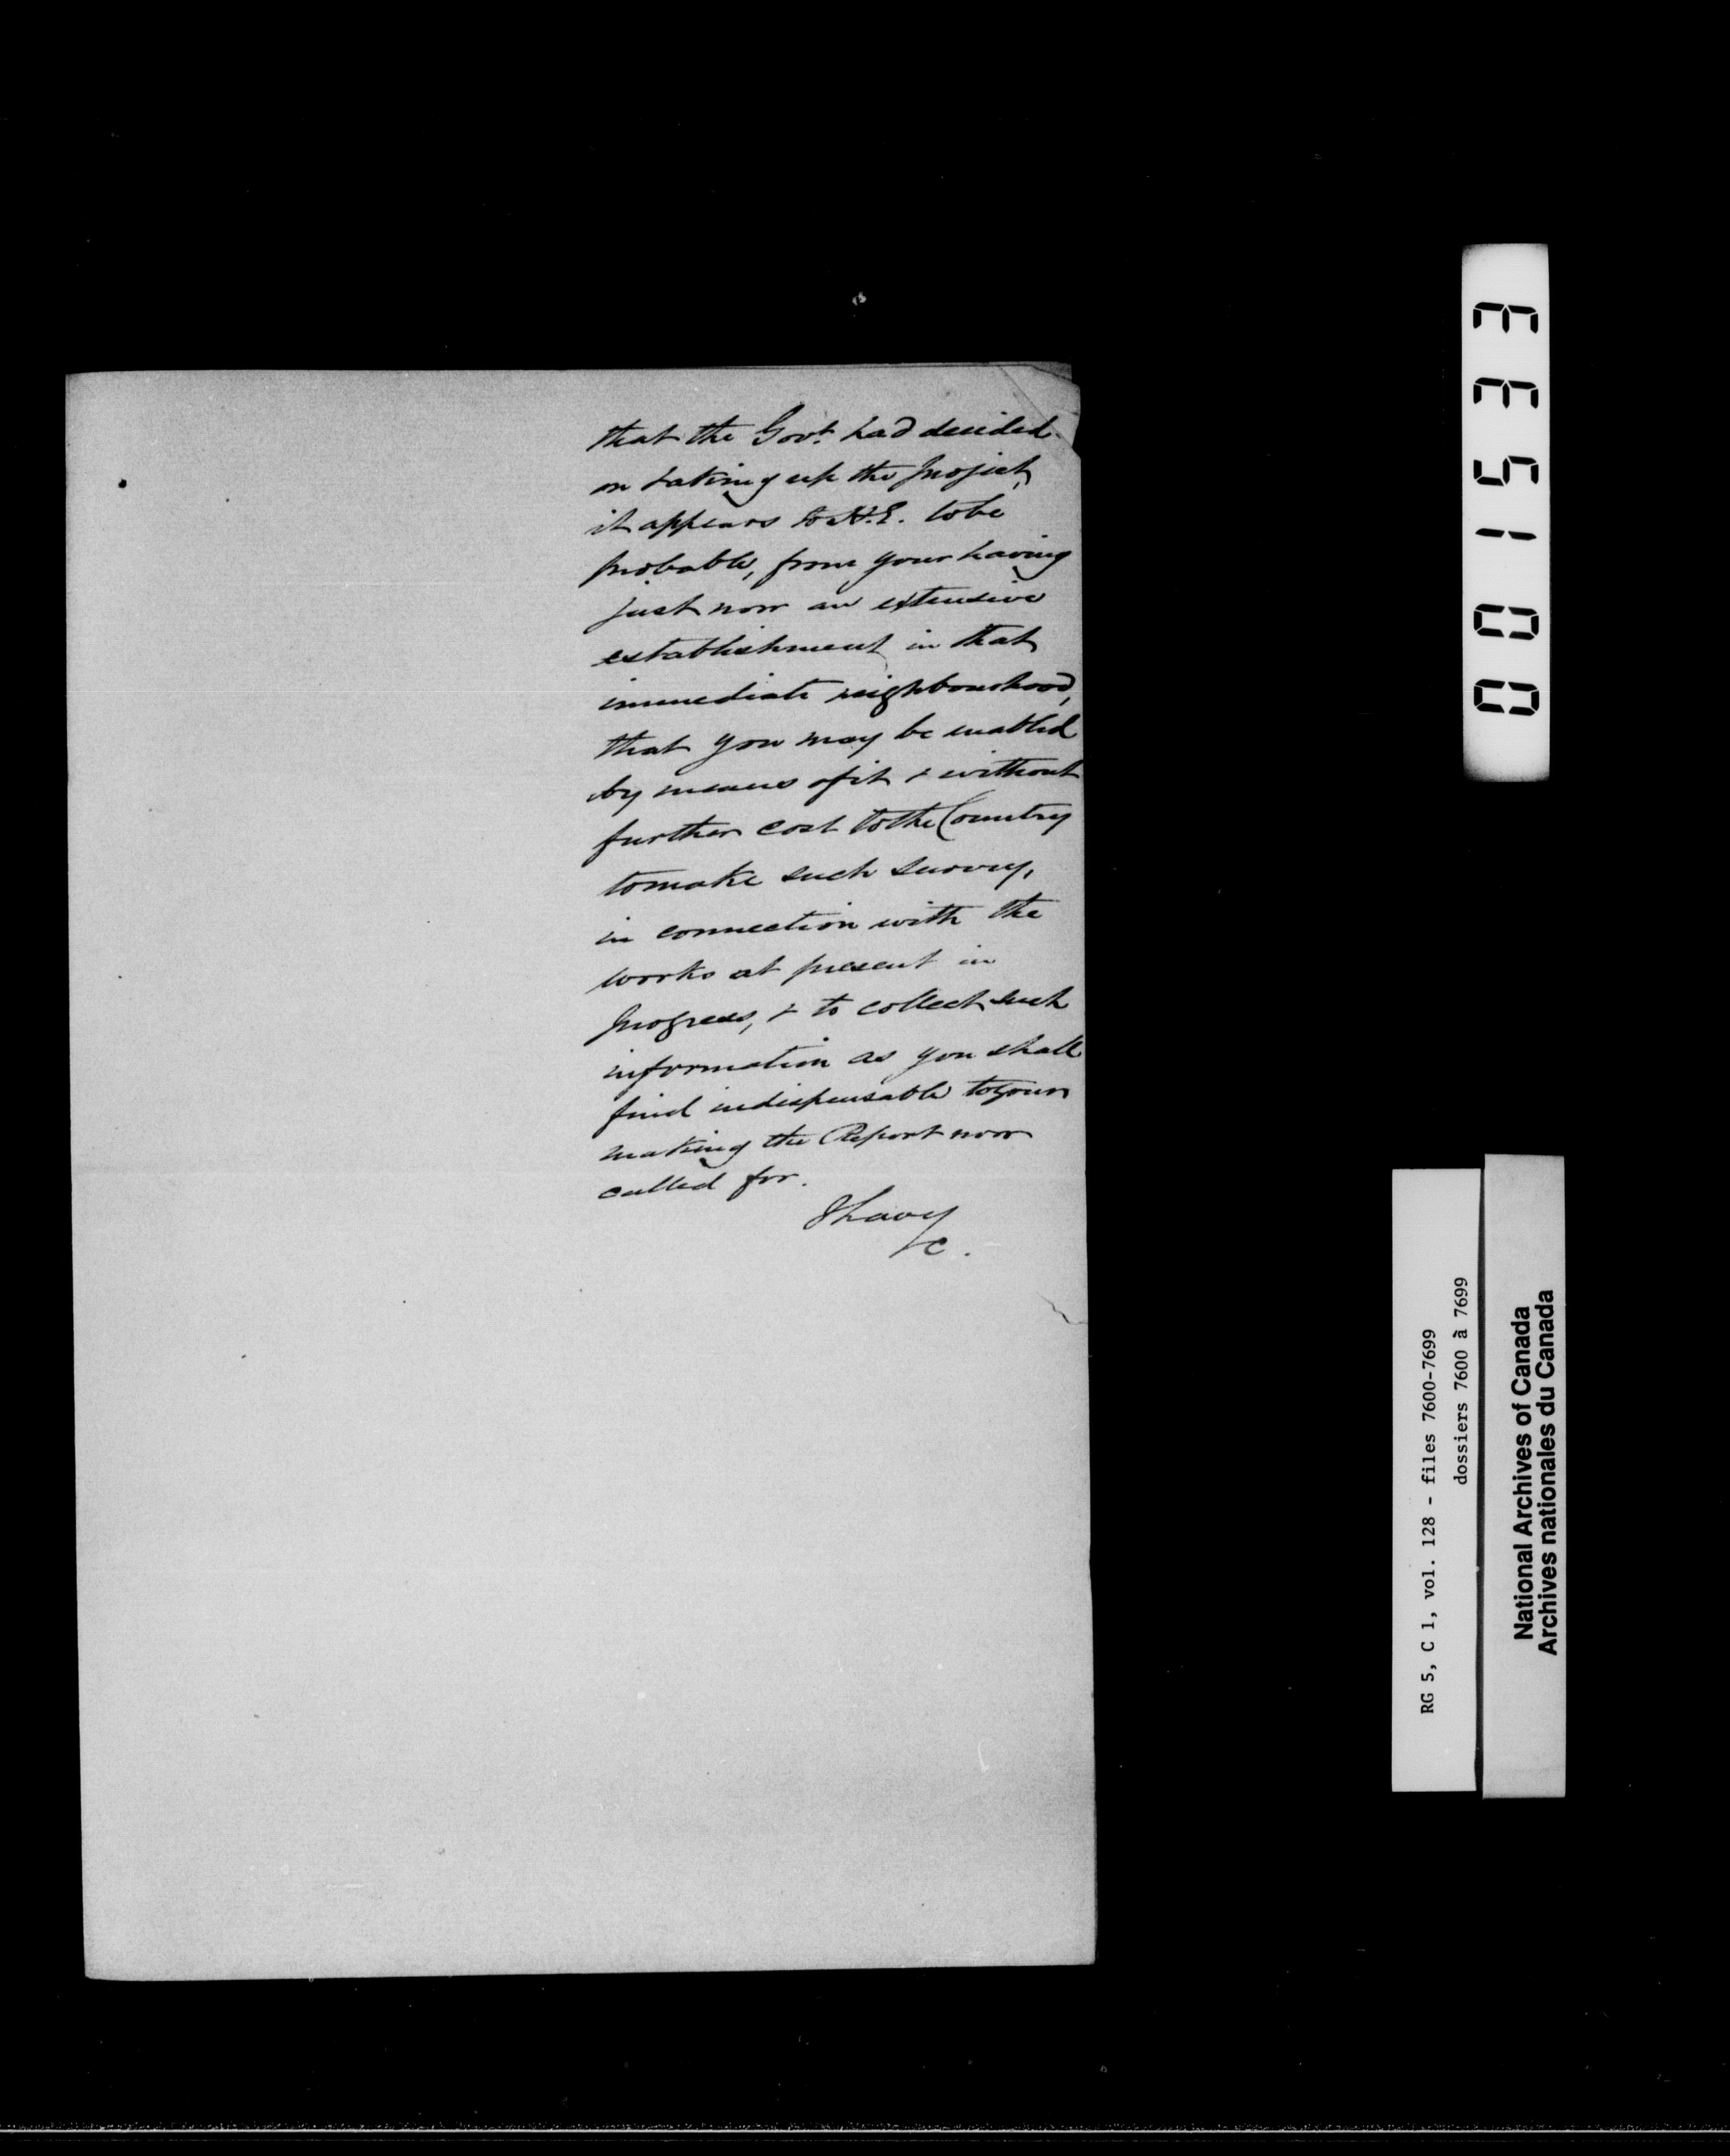 that the Govt. had decided
on taking up the project,
it appears to H.E. to be
probable, from your having
just now an extensive
establishment in that
immediate neighbourhood,
that you may be enabled
by means of it & without
further cost to the Country
to make such survey,
in connection with the
works at present in
progress, & to collect such
information as you shall
find indispensable to your
making the Report now
called for.
I have
&c.
001533
RG 5, C 1, vol. 128 - files 7600-7699
dossiers 7600 à 7699
National Archives of Canada
Archives nationales du Canada